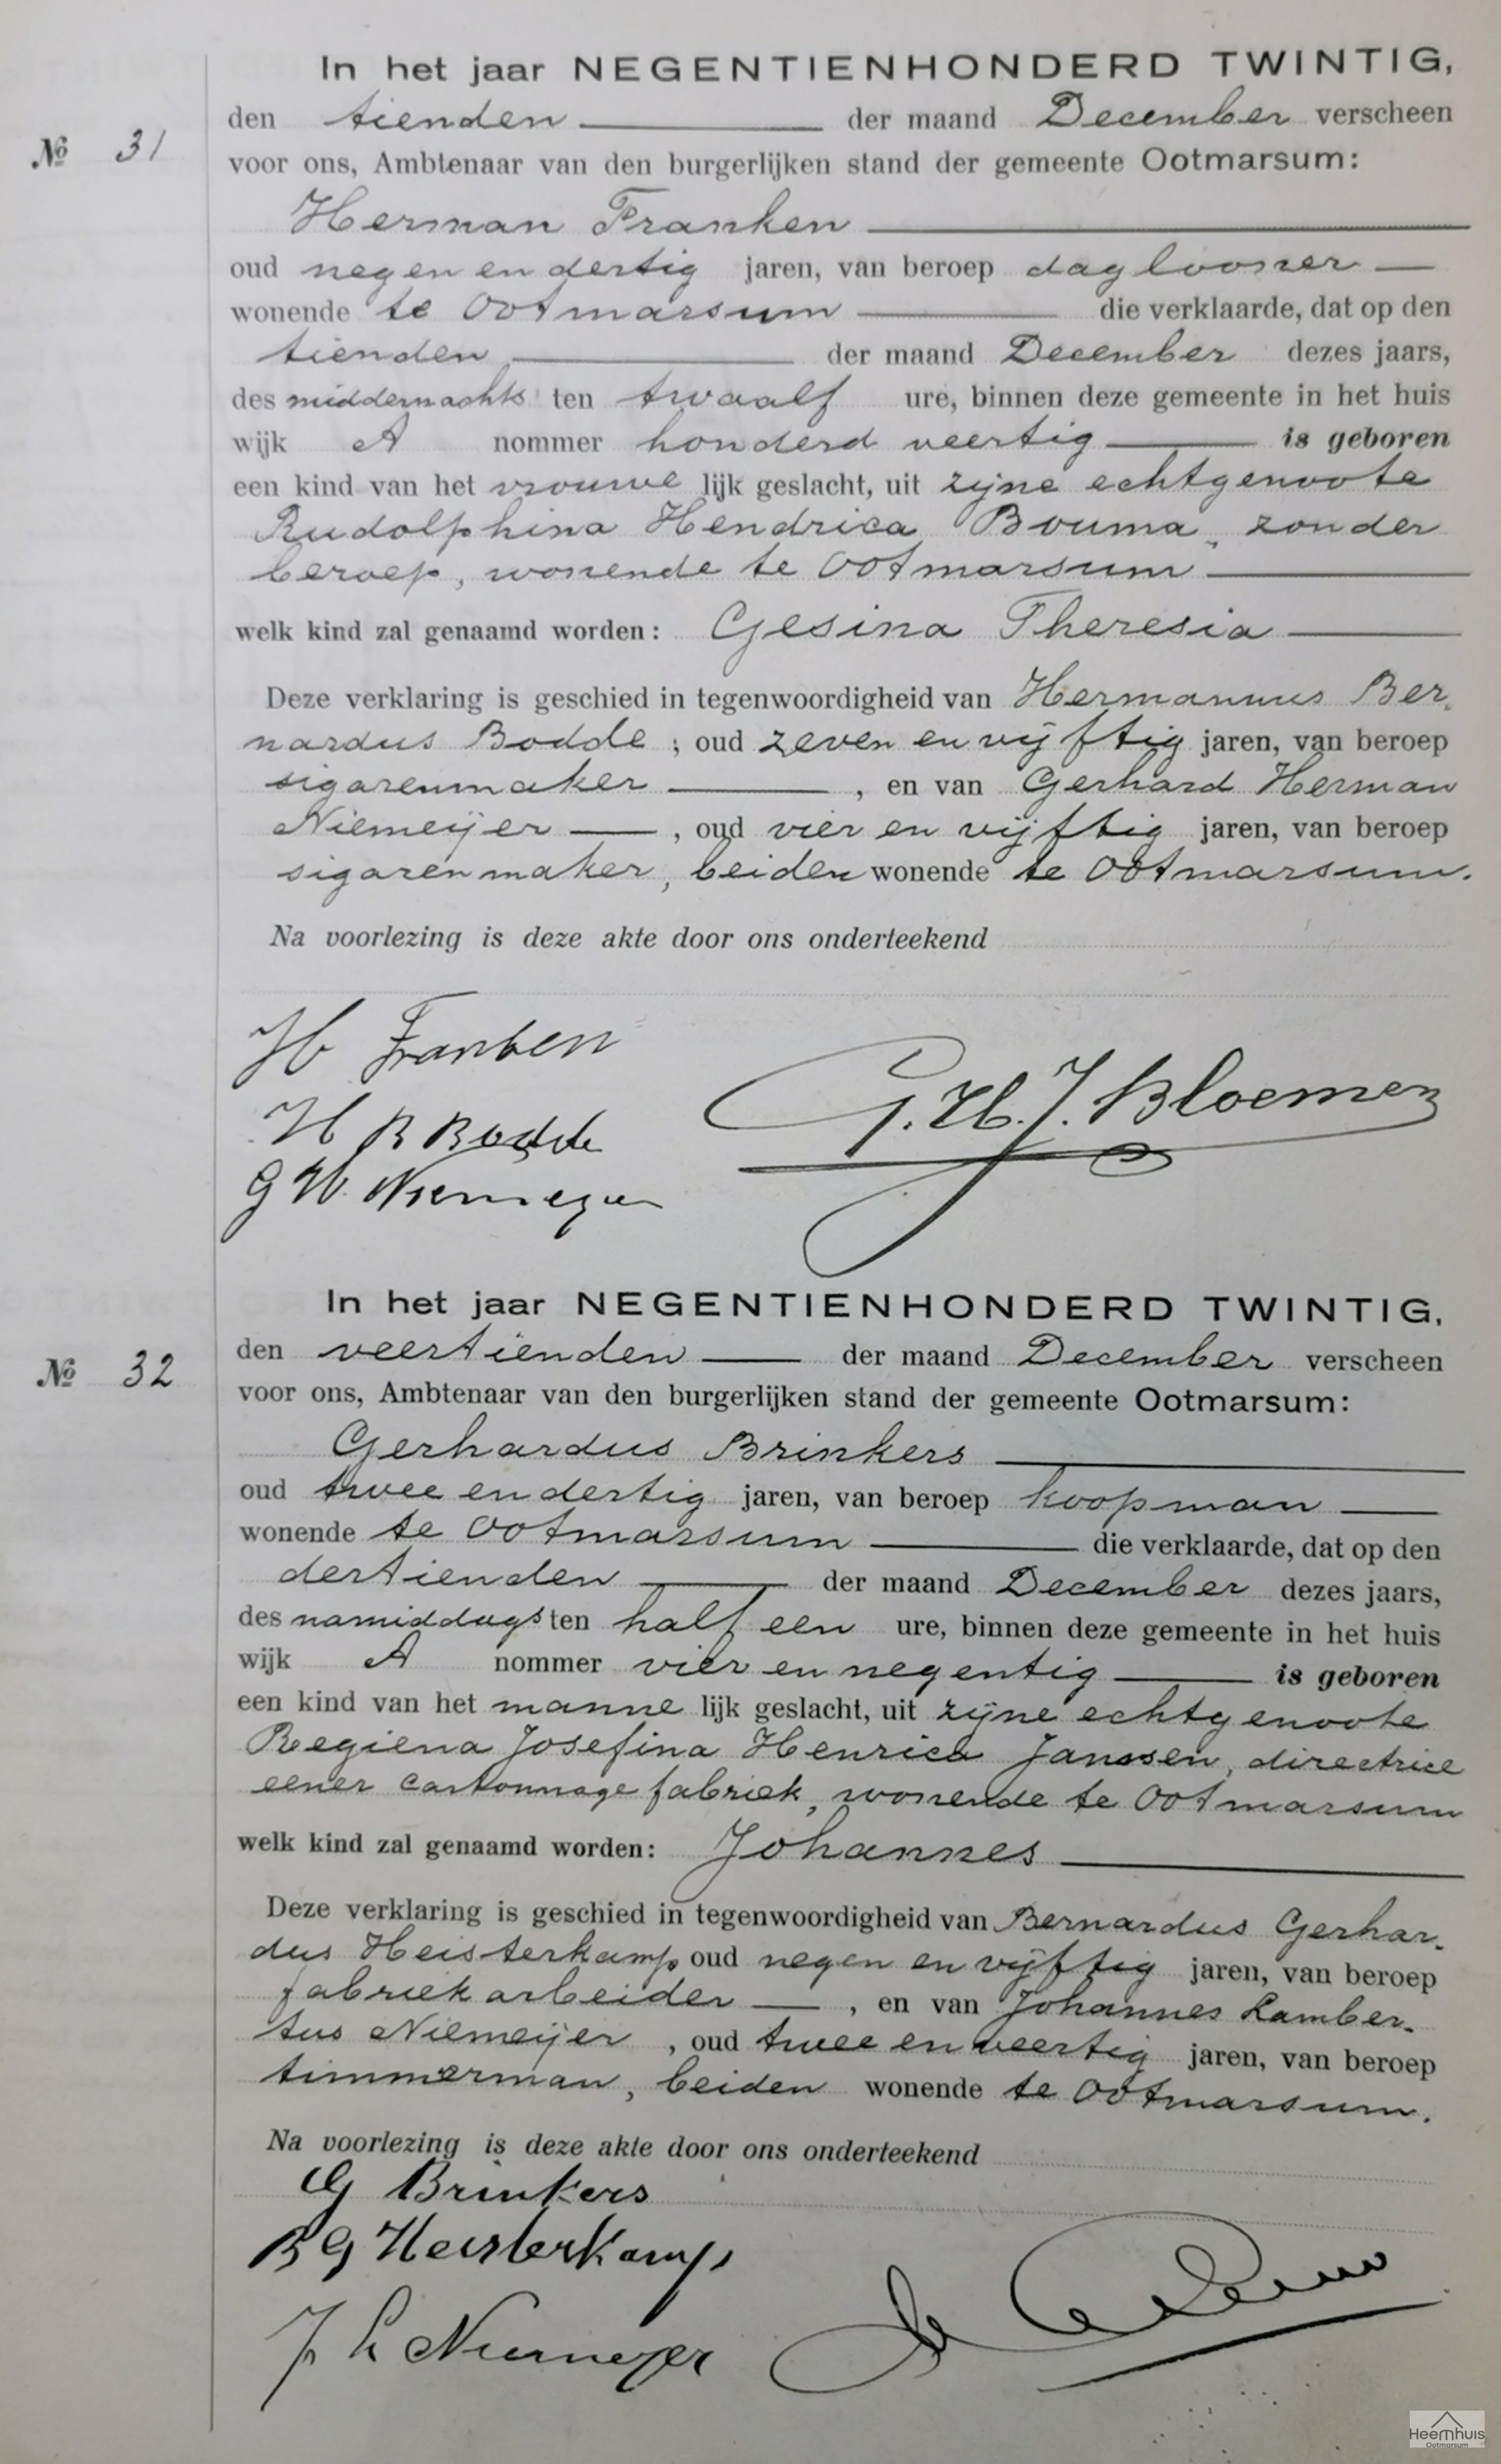 In het jaar NEGENTIENHONDERD TWINTIG,
den tienden der maand December verscheen
№ 31
voor ons, Ambtenaar van den burgerlijken stand der gemeente Ootmarsum:
Herman Franken
oud negen en dertig jaren, van beroep daglooner
wonende te Ootmarsum die verklaarde, dat op den
tienden der maand December dezes jaars,
des middernachts ten twaalf ure, binnen deze gemeente in het huis
wijk A nommer honderd veertig is geboren
een kind van het vrouwe lijk geslacht, uit zijne echtgenoote
Rudolphina Hendrica Bouma, zonder
beroep, wonende te Ootmarsum
welk kind zal genaamd worden: Gesina Theresia
Deze verklaring is geschied in tegenwoordigheid van Hermannus Ber-
nardus Bodde, oud zeven en vijftig jaren, van beroep
sigarenmaker, en van Gerhard Herman
Niemeijer, oud vier en vijftig jaren, van beroep
sigarenmaker, beiden wonende te Ootmarsum.
Na voorlezing is deze akte door ons onderteekend
H Franken
G. H. J. Bloemen
H B Bodde
G H Niemeyer
In het jaar NEGENTIENHONDERD TWINTIG,
den veertienden der maand December verscheen
№ 32
voor ons, Ambtenaar van den burgerlijken stand der gemeente Ootmarsum:
Gerhardus Brinkers
oud twee en dertig jaren, van beroep koopman
wonende te Ootmarsum die verklaarde, dat op den
dertienden der maand December dezes jaars,
des namiddags ten half een ure, binnen deze gemeente in het huis
wijk A nommer vier en negentig is geboren
een kind van het manne lijk geslacht, uit zijne echtgenoote
Regiena Josefina Henrica Janssen, directrice
eener cartonnage fabriek, wonende te Ootmarsum
welk kind zal genaamd worden: Johannes
Deze verklaring is geschied in tegenwoordigheid van Bernardus Gerhar-
dus Heisterkamp, oud negen en vijftig jaren, van beroep
fabriekarbeider, en van Johannes Lamber-
tus Niemeijer, oud twee en veertig jaren, van beroep
timmerman, beiden wonende te Ootmarsum.
Na voorlezing is deze akte door ons onderteekend
G Brinkers
B G Heisterkamp
J L Niemeyer
Heemhuis
Ootmarsum